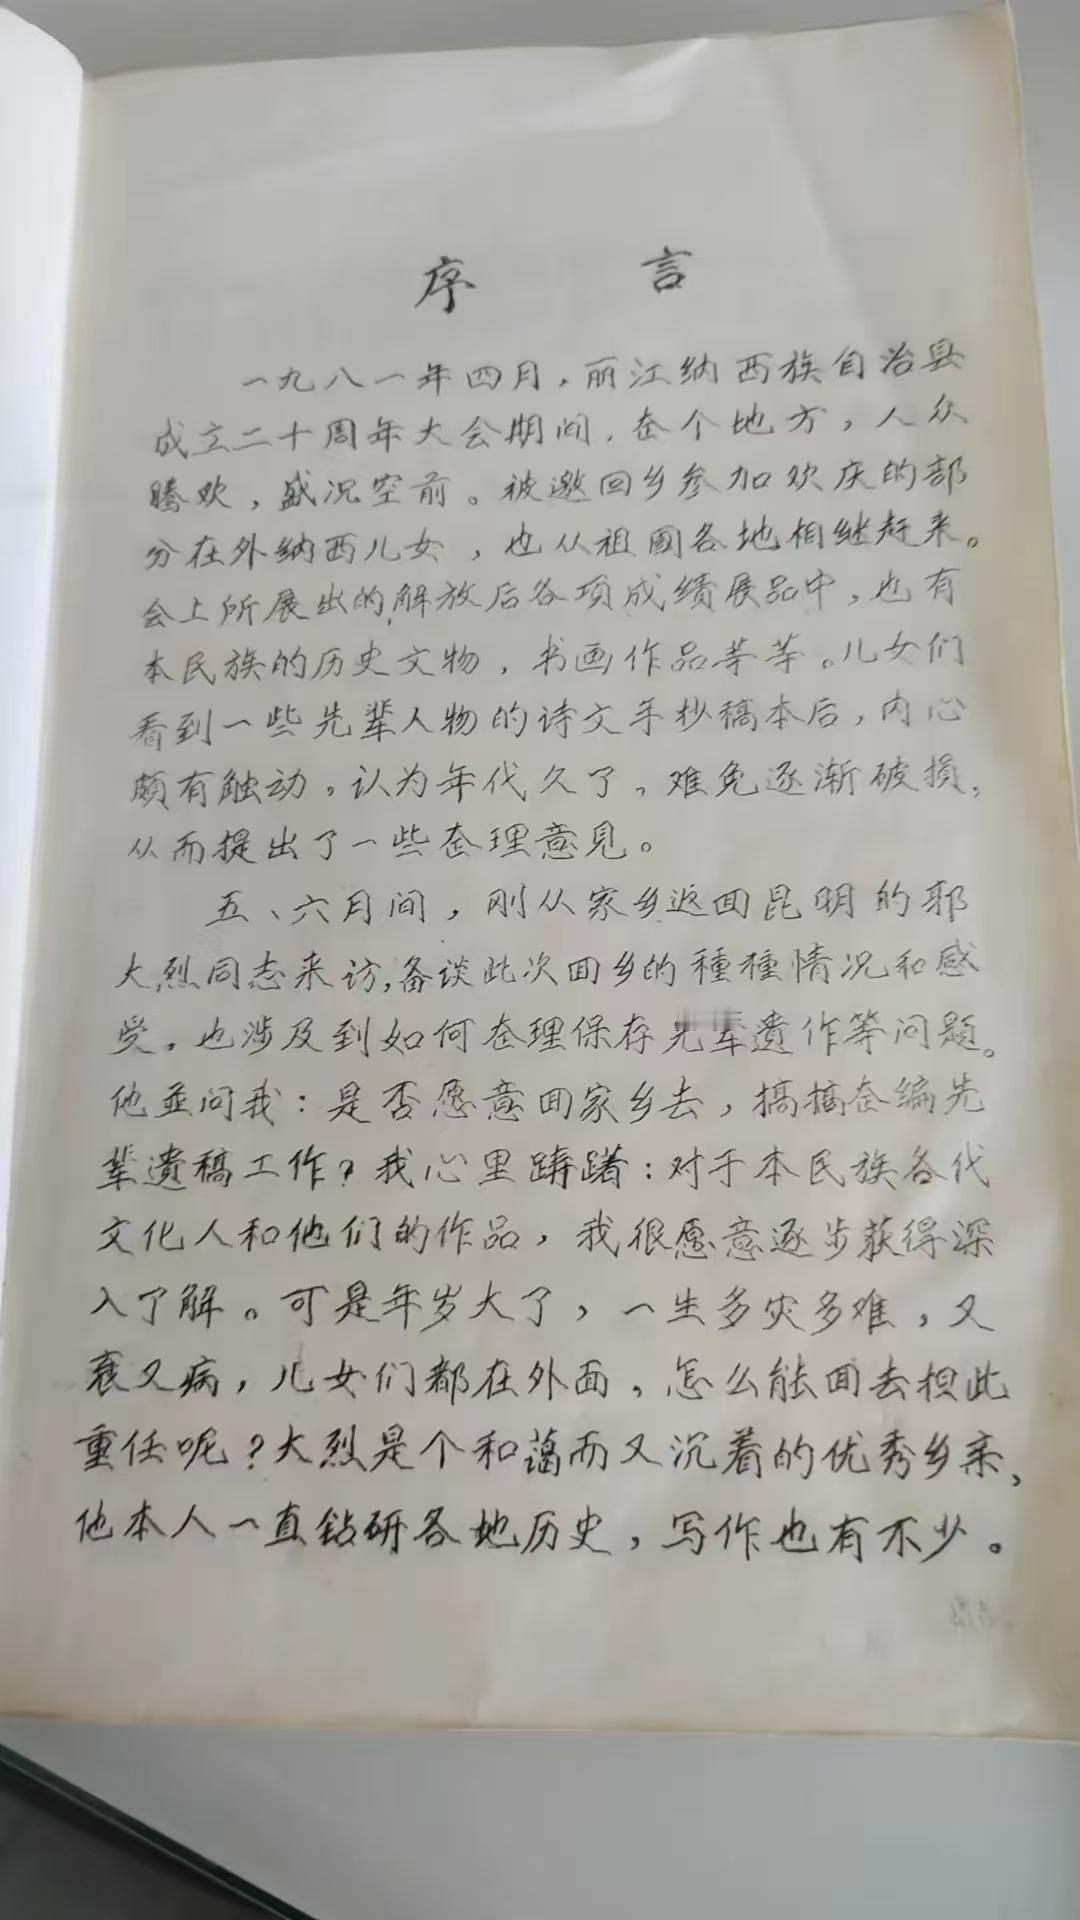 序 言
一九八一年四月，丽江纳西族自治县
成立二十周年大会期间，整个地方，人众
腾欢，盛况空前。被邀回乡参加欢庆的部
分在外纳西儿女，也从祖國各地相继赶来。
会上所展出的解放后各项成绩展品中，也有
本民族的历史文物，书画作品等等。儿女们
看到一些先辈人物的诗文手抄稿本后，内心
颇有触动，认为年代久了，难免逐渐破损，
从而提出了一些整理意见。
五、六月间，刚从家乡返回昆明的郭
大烈同志来访，备谈此次回乡的種種情况和感
受，也涉及到如何整理保存先辈遗作等问题。
他並问我：是否愿意回家乡去，搞搞整编先
辈遗稿工作？我心里踌躇：对于本民族各代
文化人和他们的作品，我很愿意逐步获得深
入了解。可是年岁大了，一生多灾多难，又
衰又病，儿女们都在外面，怎么能回去担此
重任呢？大烈是个和蔼而又沉着的优秀乡亲，
他本人一直钻研各地历史，写作也有不少。